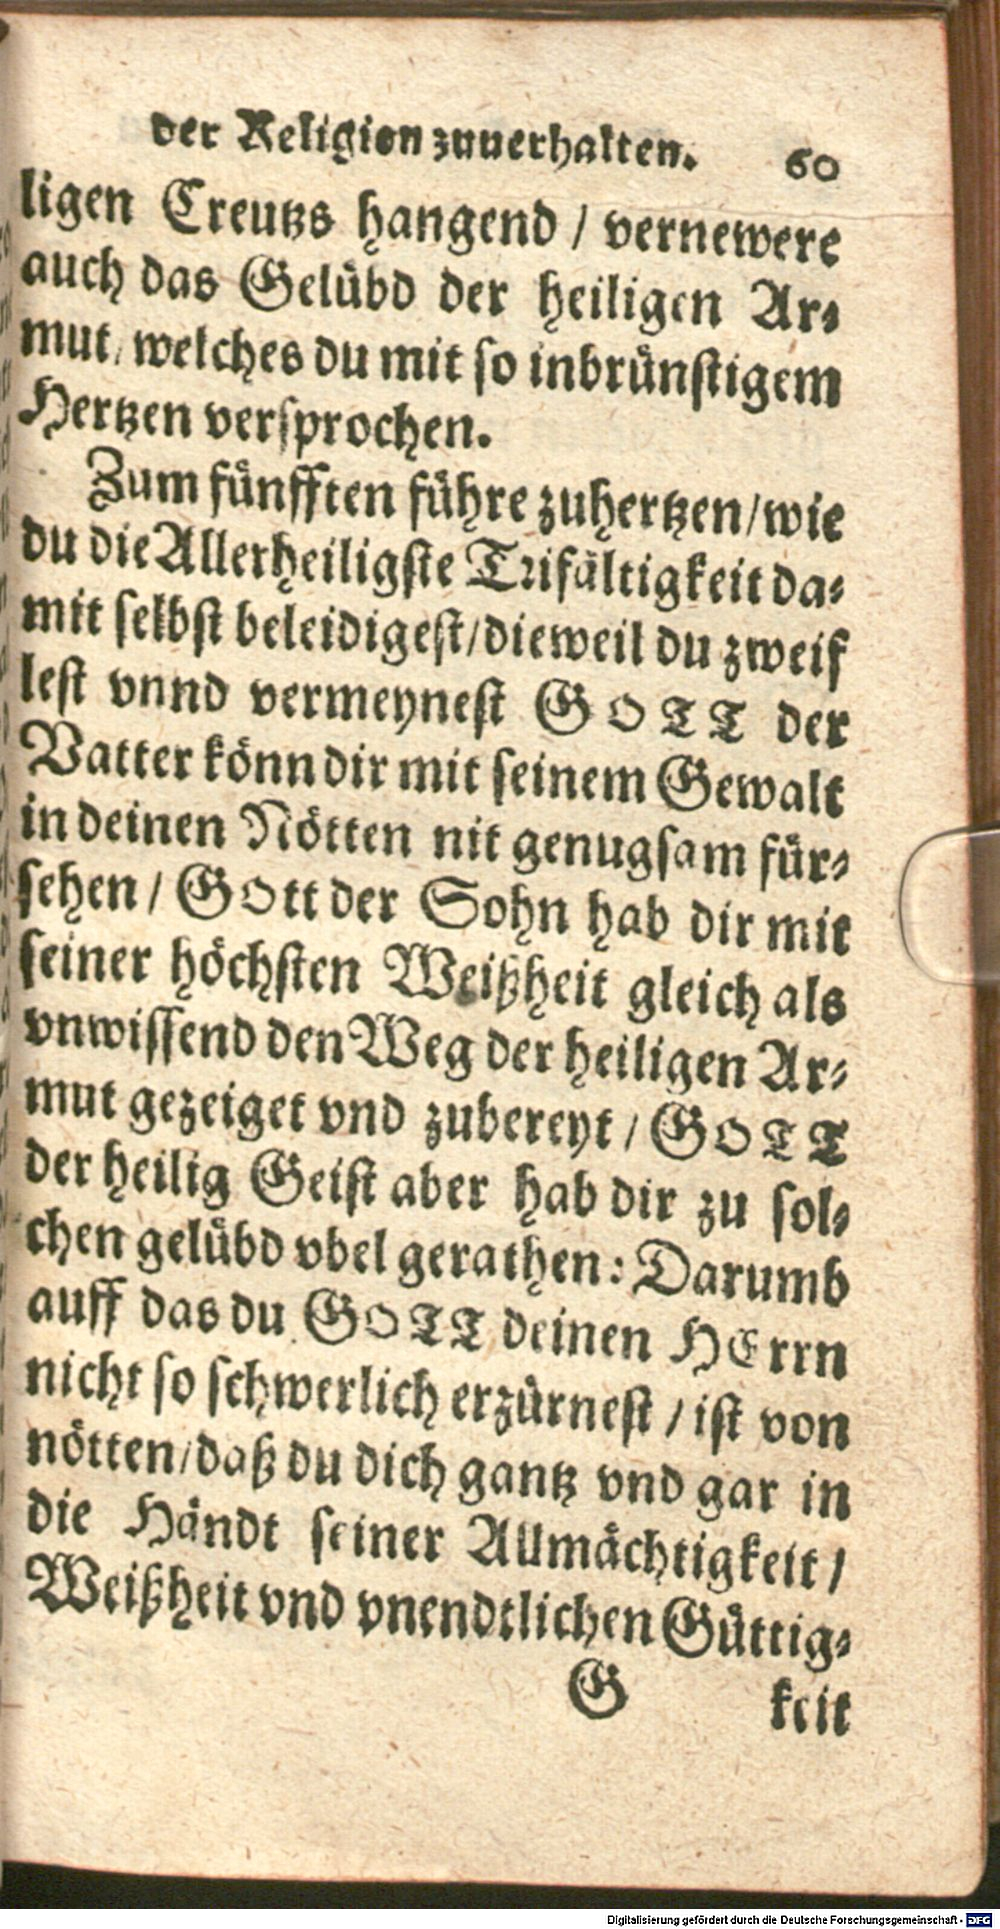 der Religion zuuerhalten. 60
ligen Creutzs hangend / vernewere
auch das Gelübd der heiligen Ar⸗
mut, welches du mit so inbrünstigem
Hertzen versprochen.
Zum fünfften führe zuhertzen / wie
du die Allerheiligste Trifältigkeit da⸗
mit selbst beleidigest / dieweil du zweif
lest vnnd vermeynest GOTT der
Vatter könn dir mit seinem Gewalt
in deinen Nötten nit genugsam für⸗
sehen / GOtt der Sohn hab dir mit
seiner höchsten Weißheit gleich als
vnwissend den Weg der heiligen Ar⸗
mut gezeiget vnd zubereyt / GOTT
der heilig Geist aber hab dir zu sol⸗
chen gelübd vbel gerathen: Darumb
auff das du GOTT deinen HErrn
nicht so schwerlich erzürnest / ist von
nötten / daß du dich gantz vnd gar in
die Händt seiner Allmächtigkeit /
Weißheit vnd vnendtlichen Güttig⸗
G keit
Digitalisierung gefördert durch die Deutsche Forschungsgemeinschaft - DFG